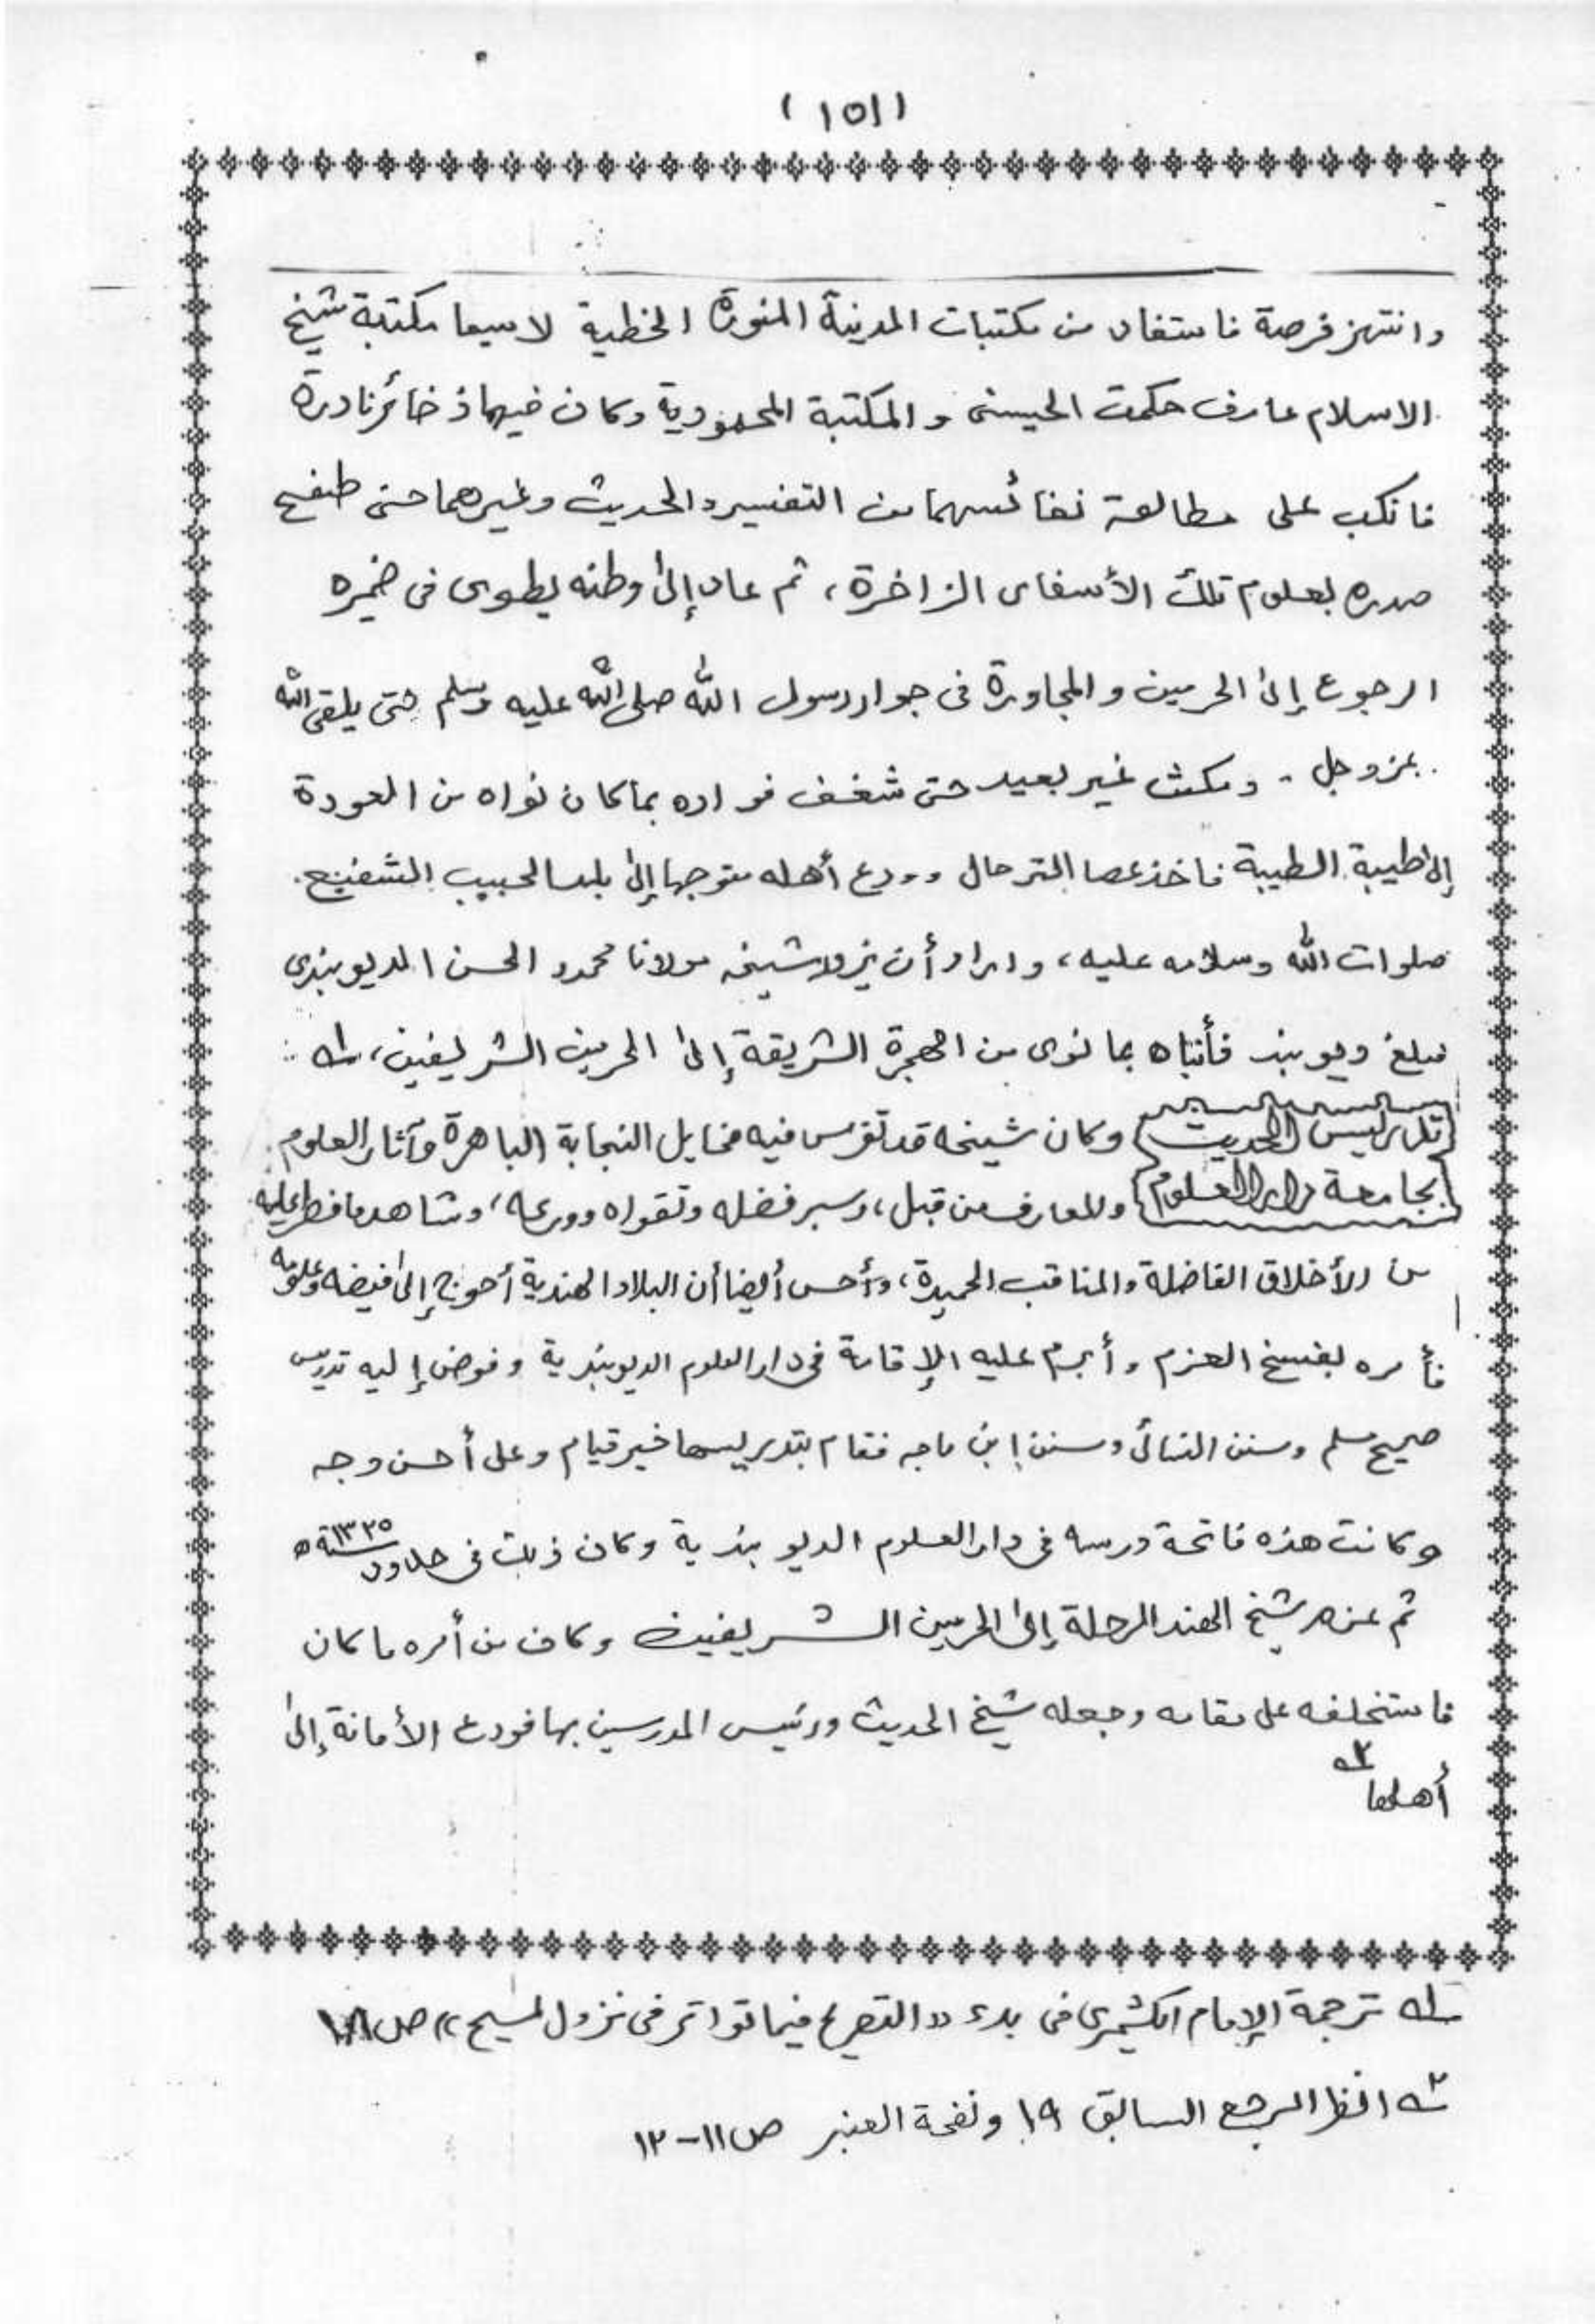 (١٥١)
وانتهز فرصة فاستفاد من مكتبات المدينة المنورة الخطية لاسيما مكتبة شيخ
الاسلام عارف حكمت الحسينى والمكتبة المحمودية وكان فيهما ذخائر نادرة
فانكب على مطالعة نفائسهما من التفسير والحديث وغيرهما حتى طفح
صدره بعلوم تلك الأسفار الزاخرة، ثم عاد إلى وطنه يطوى فى ضميره
الرجوع إلى الحرمين والمجاورة فى جوار رسول الله صلى الله عليه وسلم حتى يلقى الله
عزوجل - ومكث غير بعيد حتى شغف فواده بما كان نواه من العودة
إلى طيبة الطيبة فاخذ عصا الترحال وودع أهله متوجها إلى بلد الحبيب الشفيع
صلوات الله وسلامه عليه، واراد أن يزور شيخه مولانا محمود الحسن الديوبندى
فبلغ ديوبند فأنباه بما نوى من الهجرة الشريفة إلى الحرمين الشريفين، ١ـه
تدريس الحديث وكان شيخه قد تفرس فيه مخايل النجابة الباهرة وآثار العلوم
بجامعة دار العلوم والمعارف من قبل، وسبر فضله وتقواه وورعه، وشاهد ما فطر عليه
من الأخلاق الفاضلة والمناقب الحميدة، وأحس أيضا أن البلاد الهندية أحوج إلى فيضه وعلومه
فأمره بفسخ العزم وأبرم عليه الإقامة فى دار العلوم الديوبندية وفوض إليه تدريس
صحيح مسلم وسنن النسائى وسنن إبن ماجه فقام بتدريسها خير قيام وعلى أحسن وجه
وكانت هذه فاتحة درسه فى دار العلوم الديوبندية وكان ذلك فى حدود سنة ١٣٢٥ه
ثم عزم شيخ الهند الرحلة إلى الحرمين الشريفين وكان من أمره ما كان
فاستخلفه على مقامه وجعله شيخ الحديث ورئيس المدرسين بها فودع الأمانة إلى
أهلها ٢ـه
١ـه ترجمة الإمام الكشميرى فى بدء «التصريح فيما تواتر فى نزول المسيح» ص
٢ـه انظر المرجع السابق ١٩ ونفحة العنبر ص ١١-١٢